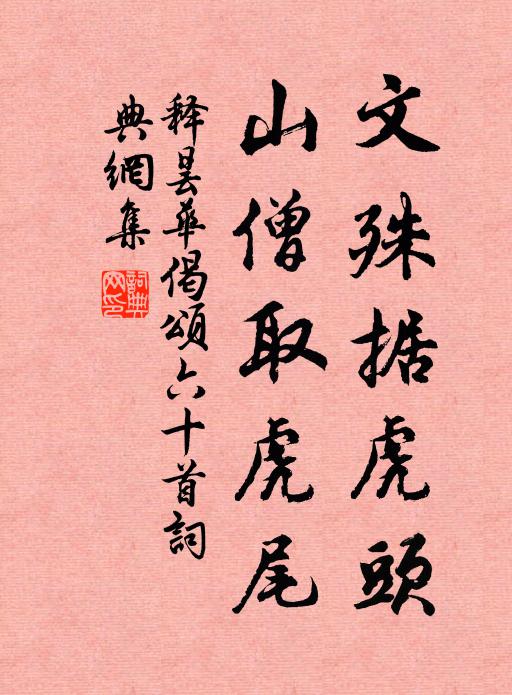 文殊据虎頭
山僧取虎尾
释昙華偈頌六十首詞
典網集
詞典网印